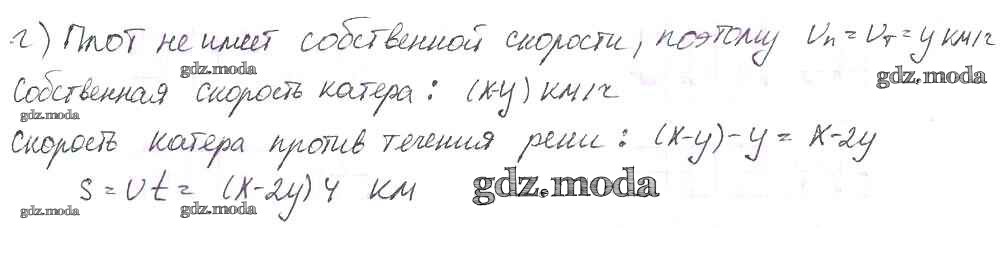 г) Плот не имеет собственной скорости, поэтому Vп = Vт = y км/ч
gdz.moda gdz.moda
Собственная скорость катера: (x-y) км/ч
gdz.moda gdz.moda
Скорость катера против течения реки: (x-y)-y = x-2y
S = Vt = (x-2y) 4 км
gdz.moda
gdz.moda gdz.moda